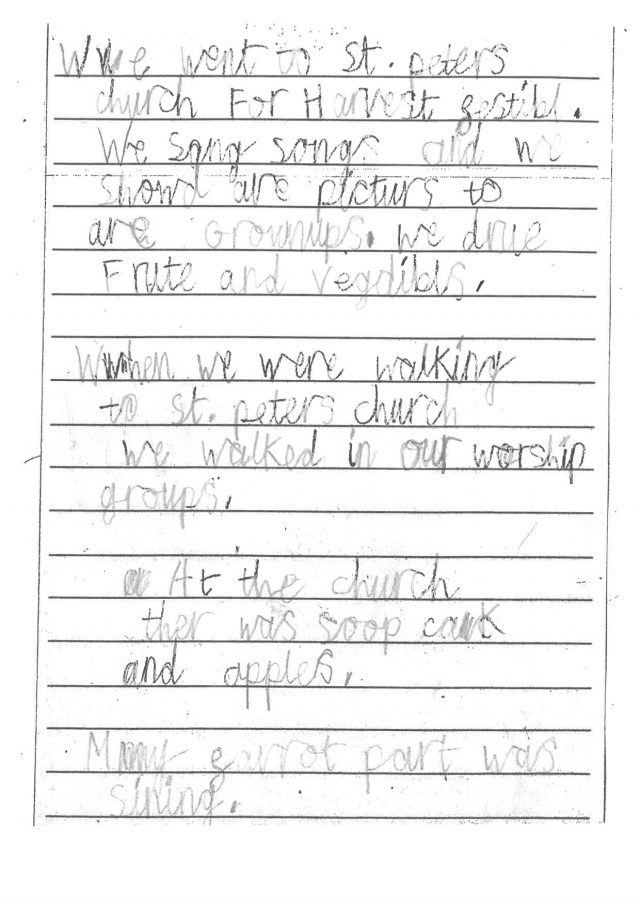 We went to st. peters
church For Harvest festibl.
We sang songs and we
showd are picturs to
are Grownups. we drue
Frute and vegdibls.
When we were walking
to st. peters church
we walked in our worship
groups.
At the church
ther was soop cauk
and apples.
My favrot part was
sining.